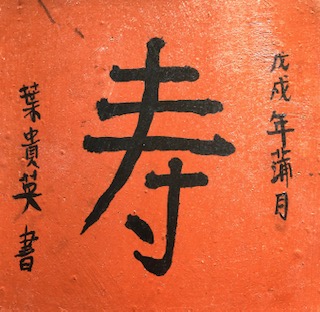 戊戌年蒲月
寿
葉貴英書